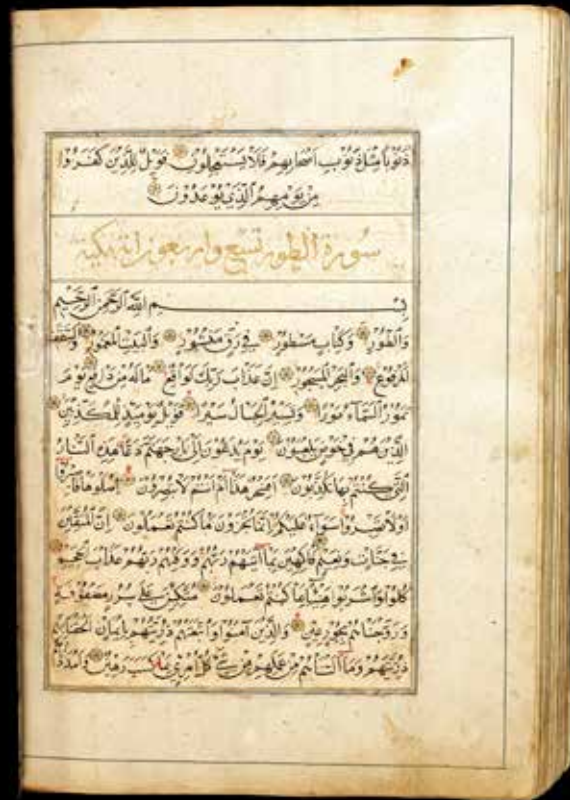 ذَنُوبًا مِثْلَ ذَنُوبِ اَصْحَابِهِمْ فَلَا يَسْتَعْجِلُونِ فَوَيْلٌ لِلَّذِينَ كَفَرُوا
مِنْ يَوْمِهِمُ الَّذِي يُوعَدُونَ
سورة الطور تسع واربعون اية مكية
بِسْمِ اللَّهِ الرَّحْمَنِ الرَّحِيمِ
وَالطُّورِ وَكِتَابٍ مَسْطُورٍ فِي رَقٍّ مَنْشُورٍ وَالْبَيْتِ الْمَعْمُورِ وَالسَّقْفِ
الْمَرْفُوعِ وَالْبَحْرِ الْمَسْجُورِ اِنَّ عَذَابَ رَبِّكَ لَوَاقِعٌ مَالَهُ مِنْ دَافِعٍ يَوْمَ
تَمُورُ السَّمَاءُ مَوْرًا وَتَسِيرُ الْجِبَالُ سَيْرًا فَوَيْلٌ يَوْمَئِذٍ لِلْمُكَذِّبِينَ
الَّذِينَ هُمْ فِي خَوْضٍ يَلْعَبُونَ يَوْمَ يُدَعُّونَ اِلَى نَارِ جَهَنَّمَ دَعًّا هَذِهِ النَّارُ
الَّتِي كُنْتُمْ بِهَا تُكَذِّبُونَ اَفَسِحْرٌ هَذَا اَمْ اَنْتُمْ لَا تُبْصِرُونَ اِصْلَوْهَا فَاصْبِرُوا
اَوْ لَا تَصْبِرُوا سَوَاءٌ عَلَيْكُمْ اِنَّمَا تُجْزَوْنَ مَا كُنْتُمْ تَعْمَلُونَ اِنَّ الْمُتَّقِينَ
فِي جَنَّاتٍ وَنَعِيمٍ فَاكِهِينَ بِمَا اَتَيهُمْ رَبُّهُمْ وَوَقَيهُمْ رَبُّهُمْ عَذَابَ الْجَحِيمِ
كُلُوا وَاشْرَبُوا هَنِيئًا بِمَا كُنْتُمْ تَعْمَلُونَ مُتَّكِئِينَ عَلَى سُرُرٍ مَصْفُوفَةٍ
وَزَوَّجْنَاهُمْ بِحُورٍ عِينٍ وَالَّذِينَ آمَنُوا وَاتَّبَعَتْهُمْ ذُرِّيَّتُهُمْ بِاِيمَانٍ اَلْحَقْنَا بِهِمْ
ذُرِّيَّتَهُمْ وَمَا اَلَتْنَاهُمْ مِنْ عَمَلِهِمْ مِنْ شَيْءٍ كُلُّ امْرِئٍ بِمَا كَسَبَ رَهِينٌ وَاَمْدَدْنَا